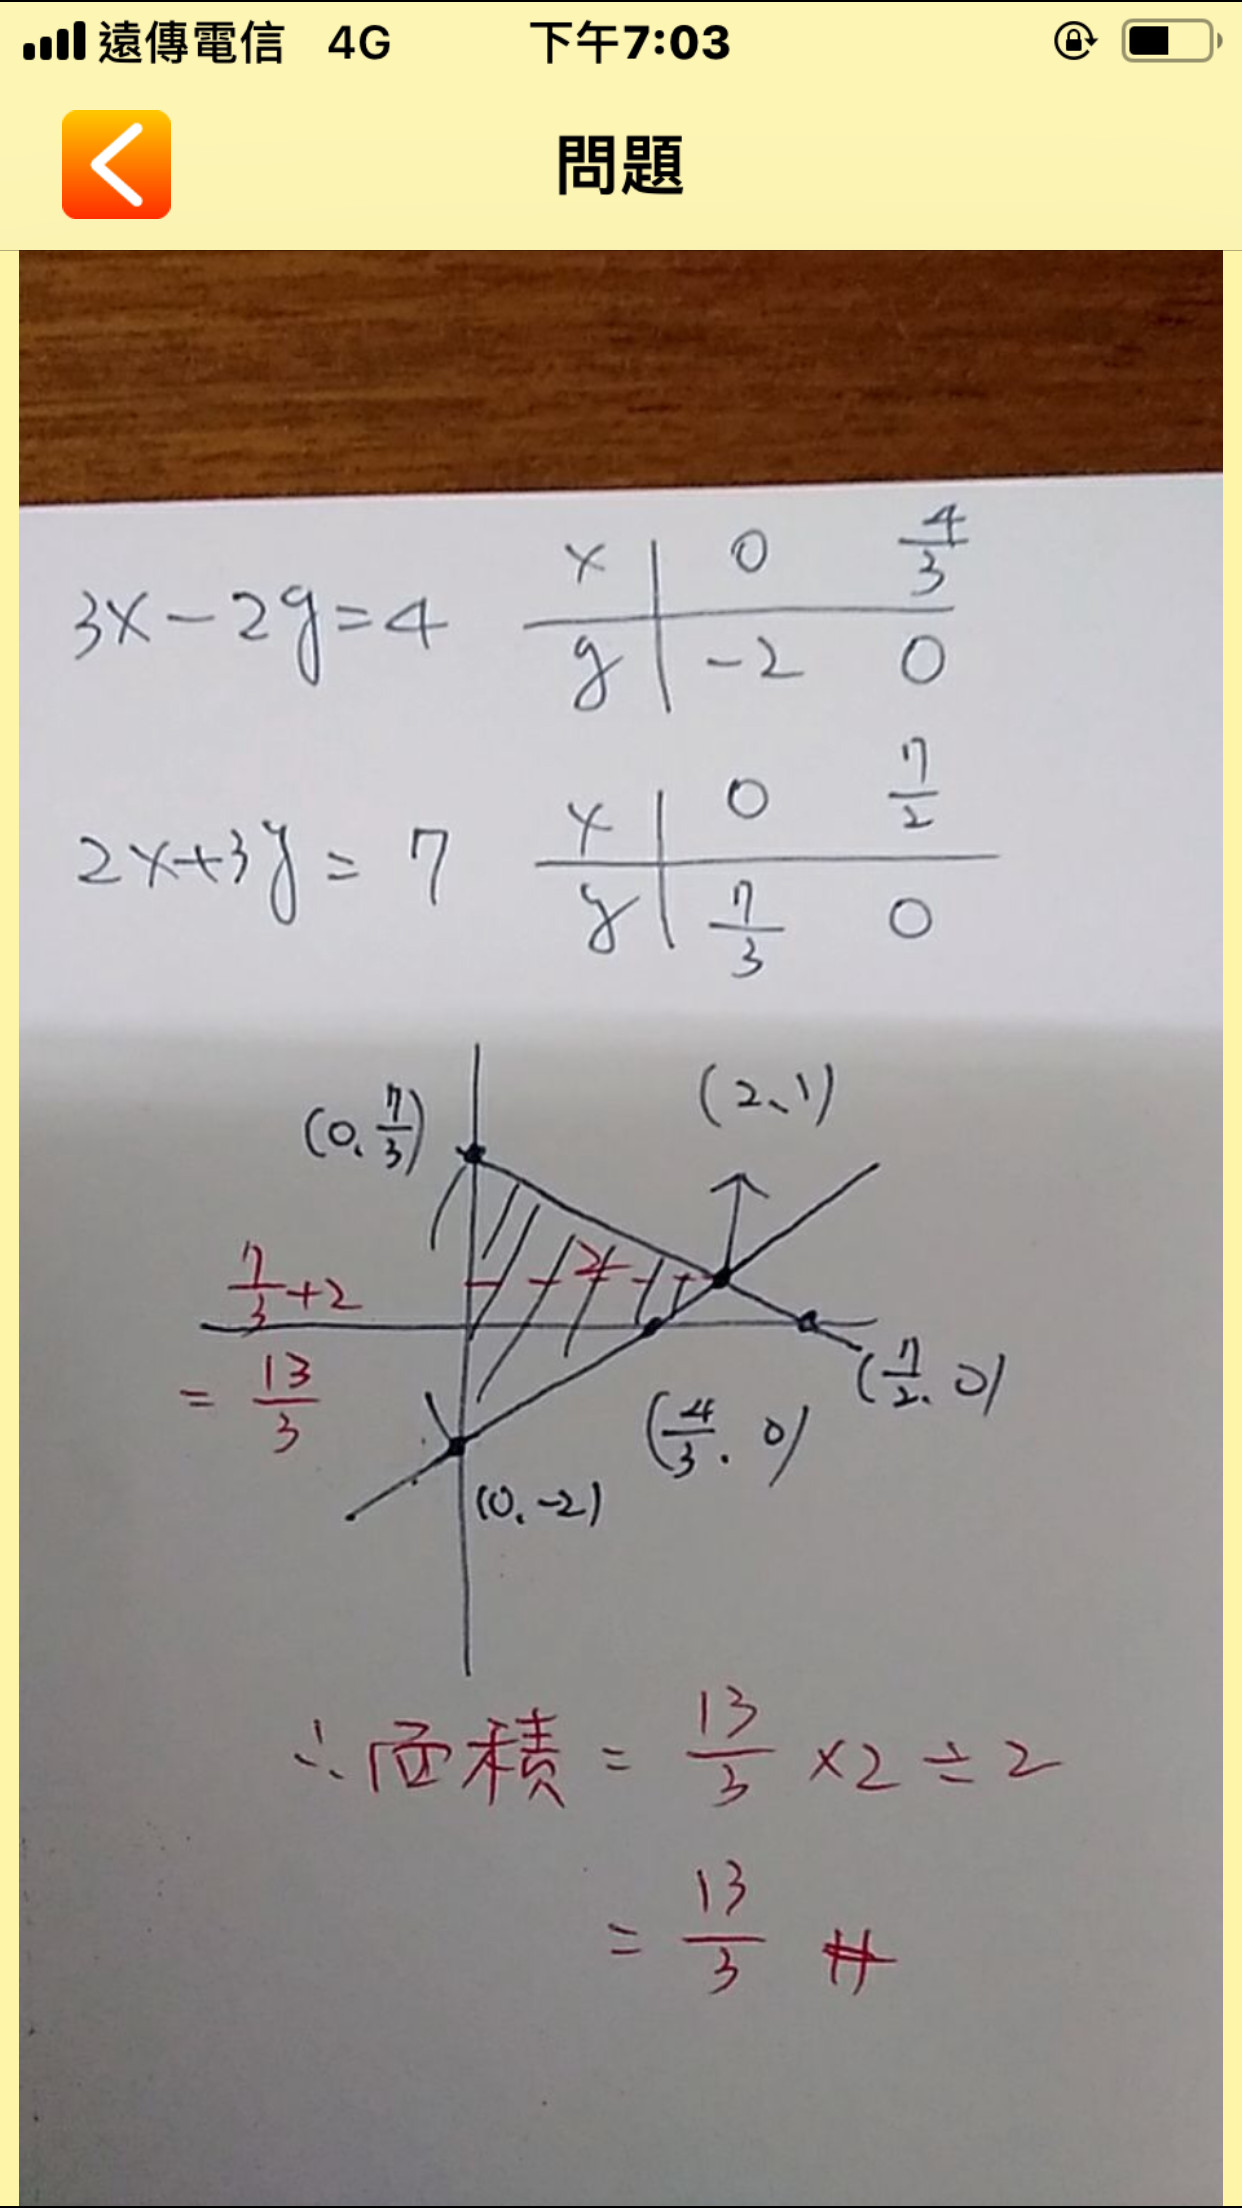 遠傳電信 4G 下午7:03
問題
3x-2y=4
x | 0 4/3
y | -2 0
2x+3y=7
x | 0 7/2
y | 7/3 0
(0, 7/3)
(2、1)
7/3+2
2
= 13/3
(7/2, 0)
(4/3, 0)
(0, -2)
∴面積 = 13/3 ×2÷2
= 13/3 #